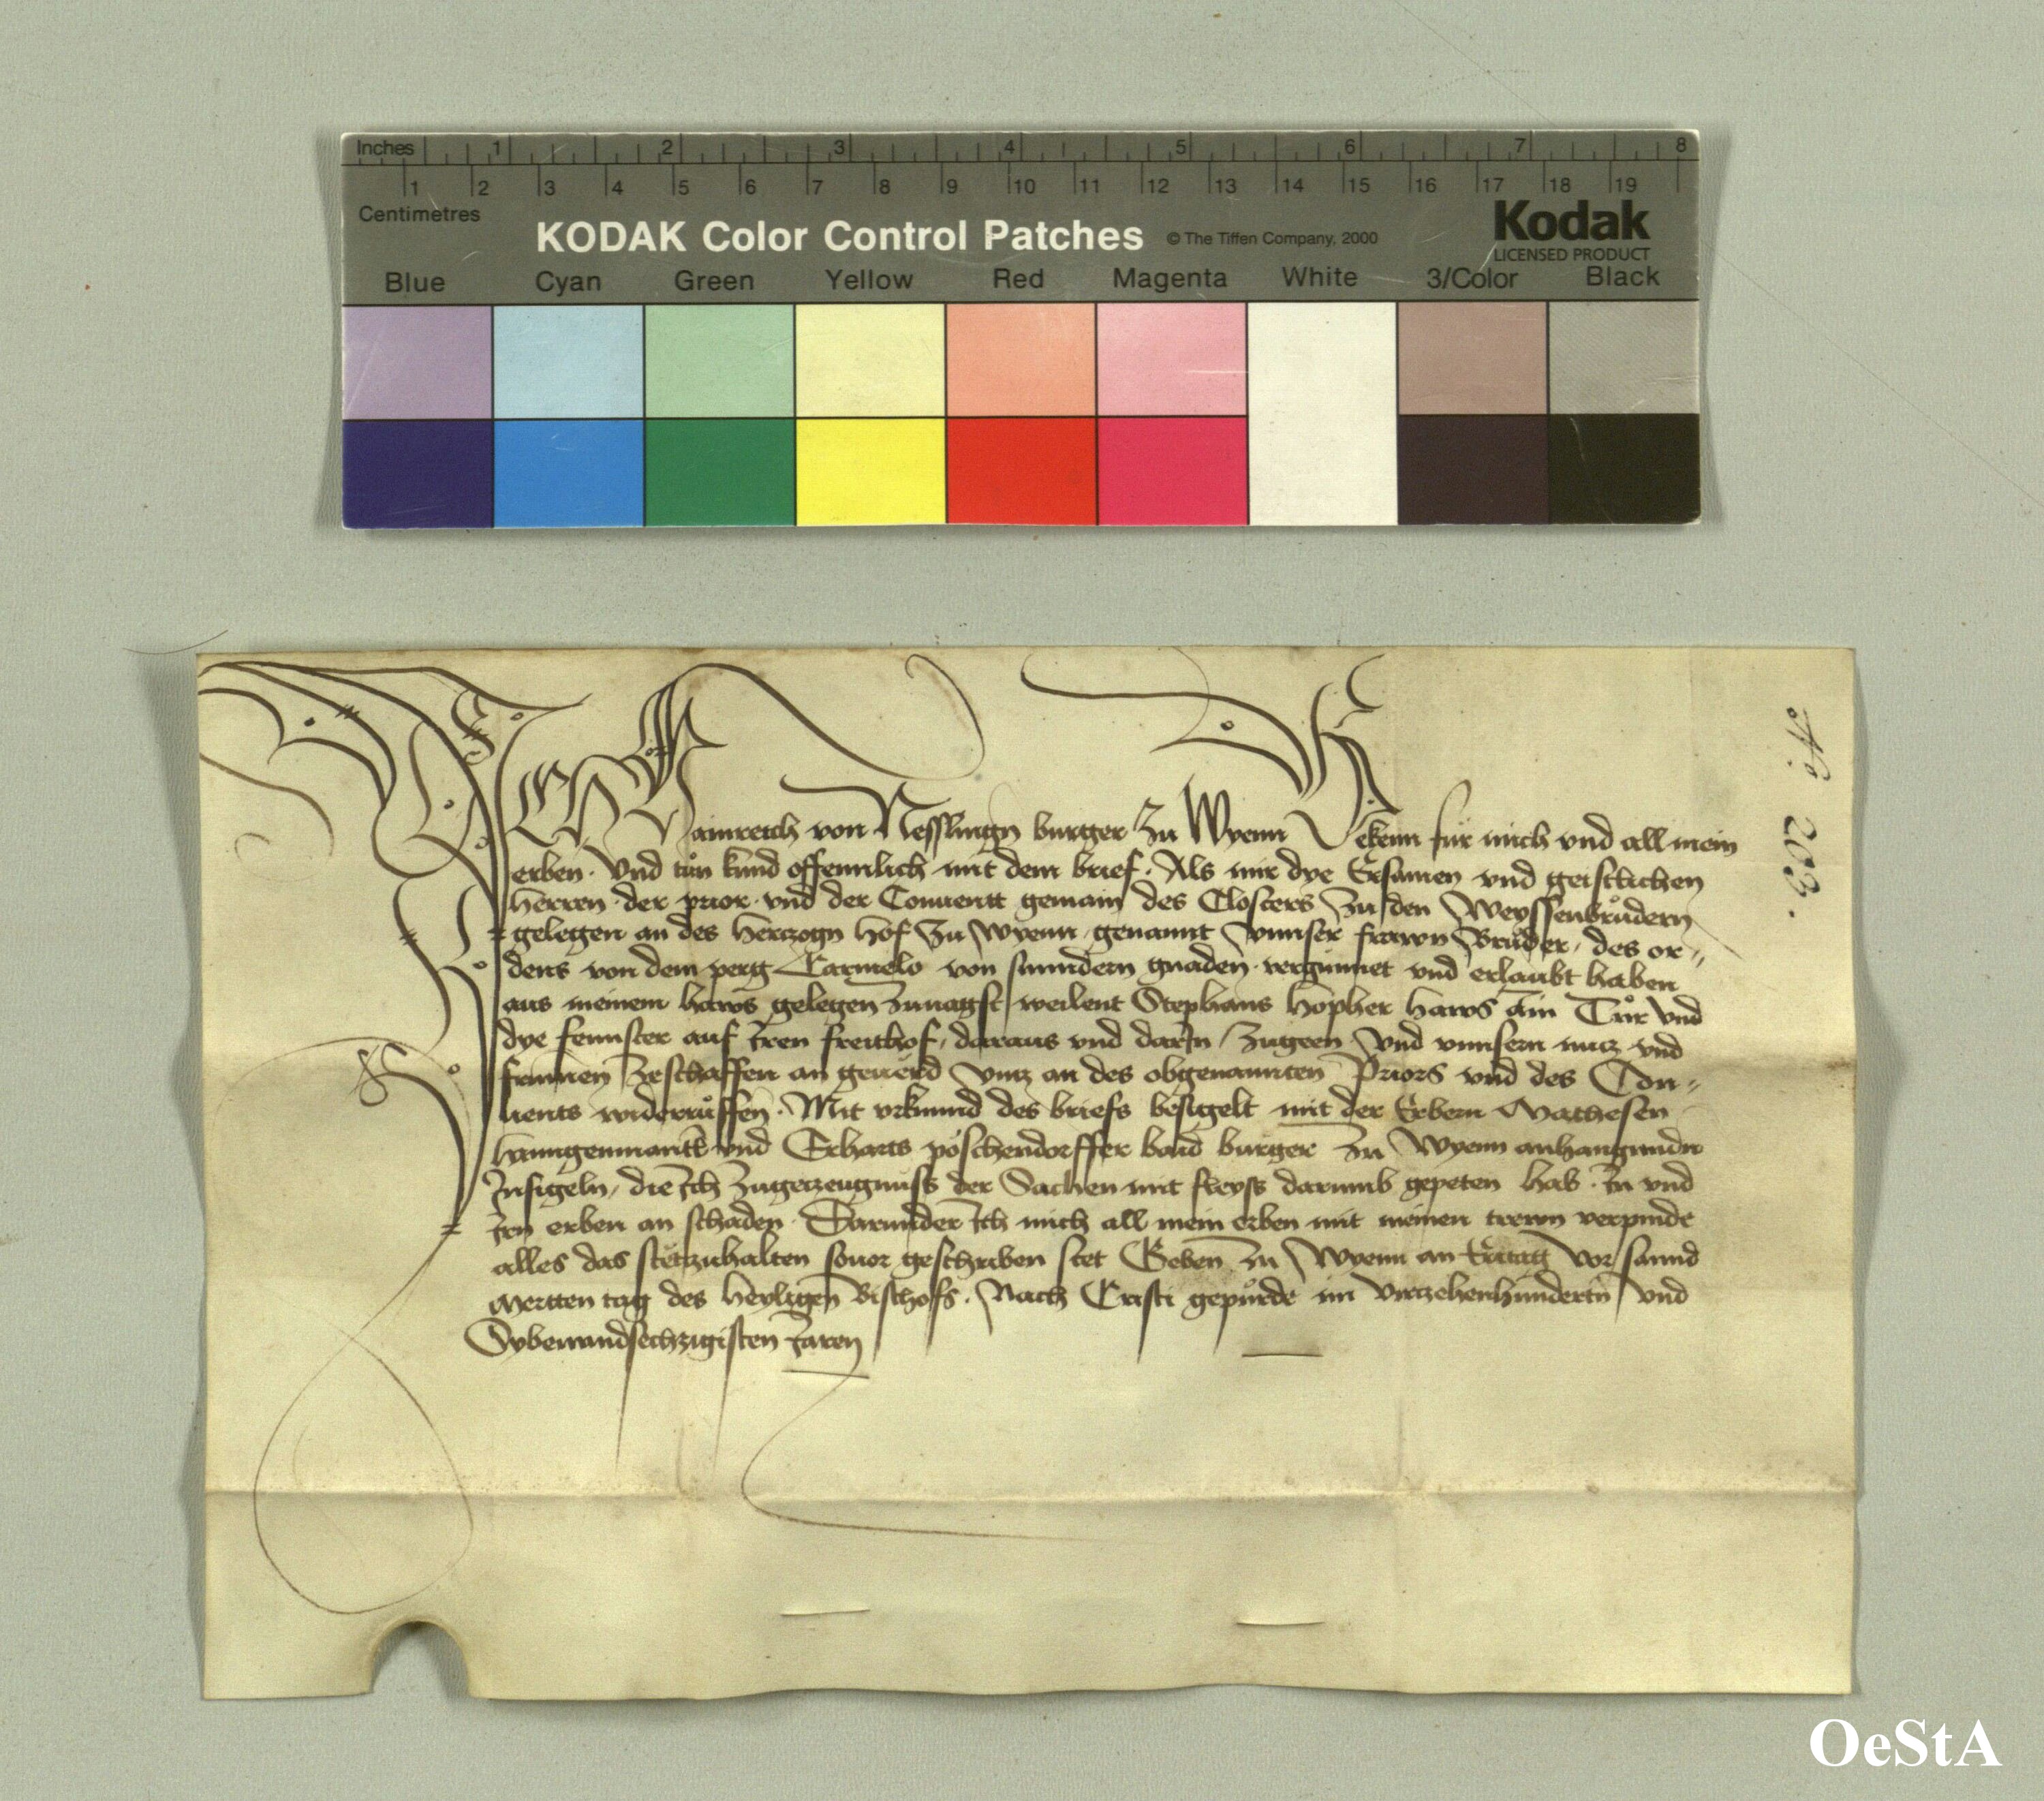 Inches 1 2 3 4 5 6 7 8
1 2 3 4 5 6 7 8 9 10 11 12 13 14 15 16 17 18 19
Centimetres
KODAK Color Control Patches © The Tiffen Company, 2000 Kodak
LICENSED PRODUCT
Blue Cyan Green Yellow Red Magenta White 3/Color Black
ICH Hainreich von Nesslingn burger Zu Wyenn Bekenn für mich vnd all mein
erben. Vnd tůn kund offennlich mit dem brief. Als mir dye Ersamen vnd geistlichen
herren der prior vnd der Conuentt gemain des Closters Zu den Weyssenbrůdern
gelegen an des herczogn hof Zu Wyenn genannt Vnnser frawn Brůder, des or-
dens von dem perg Carmelo von sunndern gnaden vergünnet vnd erlaubt haben
aus meinem haws gelegen Zunagst weilent Stephans hopher haws ain Tür Vnd
dye fennster auf Iren freithof, daraus vnd darIn Zugeen Vnd vnnsern nucz vnd
frummen Zeschaffen an geuerd Vncz an des obgenannten Priors vnd des Con-
uents widerrůffen. Mit vrkunnd des briefs besigelt mit der Erbern Mathesen
vnd Erharts pöschendorffer baid burger Zu Wyenn anhangundn
Insigeln, die Ich Zugeczeugnüss der Sachen mit fleyss darumb gepeten hab. In vnd
Iren erben an schaden. Darunder Ich mich all mein erben mit meinen trewn verpinde
alles das stětzuhalten souor geschriben stet Geben Zu Wyenn an Eritag Vor sannd
Mertten tag des heyligen Bischofs. Nach Cristi gepůrde im Virczehenhundertn Vnd
Sybenundsechzigisten Jaren
No 203.
OeStA